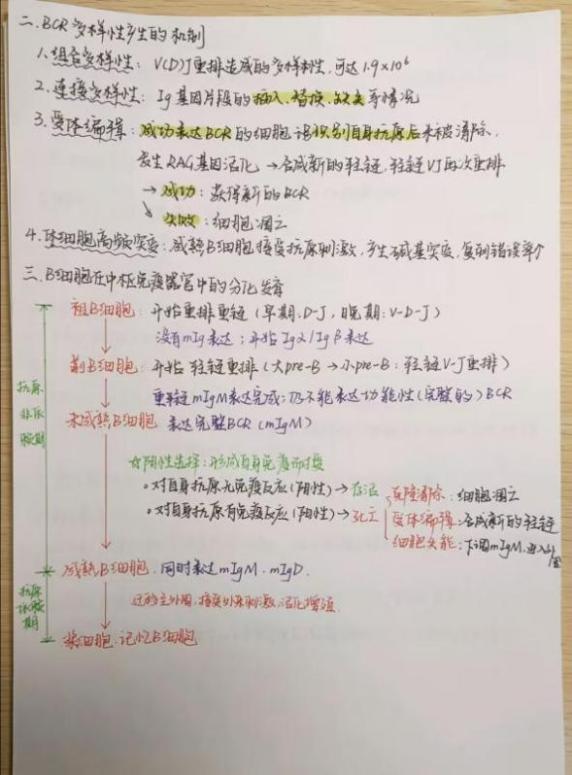 二.BCR多样性产生的机制
1.组合多样性:V(D)J重排造成的多样性,可达1.9×10⁶
2.连接多样性:Ig基因片段的插入、替换、缺失等情况
3.受体编辑:成功表达BCR的细胞识别自身抗原后未被清除,
发生RAG基因活化→合成新的轻链,轻链VJ再次重排
→成功:获得新的BCR
↘失败:细胞凋亡
4.体细胞高频突变:成熟B细胞接受抗原刺激,产生碱基突变,复制错误等
三.B细胞在中枢免疫器官中的分化发育
抗原非依赖期
祖B细胞:开始重排重链(早期:D-J,晚期:V-D-J)
没有mIg表达;开始Igα/Igβ表达
前B细胞:开始轻链重排(大pre-B→小pre-B:轻链V-J重排)
重链mIgM表达完成;仍不能表达功能性(完整的)BCR
未成熟B细胞 表达完整BCR(mIgM)
☆阴性选择:形成自身免疫耐受
·对自身抗原无免疫反应(阴性)→存活
·对自身抗原有免疫反应(阳性)→死亡
克隆清除:细胞凋亡
受体编辑:合成新的轻链
细胞失能:下调mIgM,进入外周
成熟B细胞.同时表达mIgM.mIgD.
抗原依赖期
迁移至外周,接受外来刺激,活化增殖
浆细胞.记忆B细胞